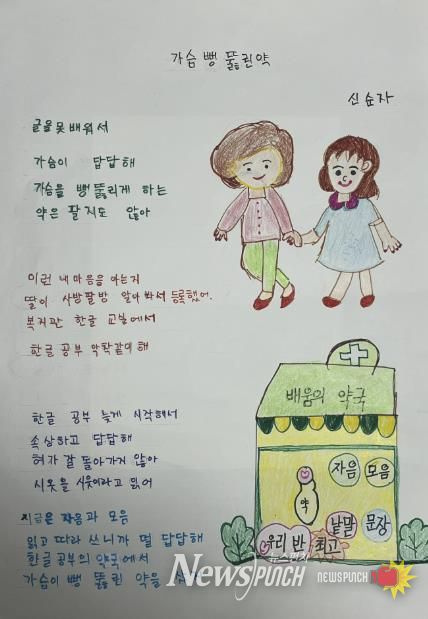 가슴 뻥 뚫린 약
신순자
글을 못 배워서
가슴이 답답해
가슴을 뻥 뚫리게 하는
약은 팔지도 않아
이런 내 마음을 아는지
딸이 사방팔방 알아봐서 등록했어.
복지관 한글 교실에서
한글 공부 악착같이 해
한글 공부 늦게 시작해서
속상하고 답답해
혀가 잘 돌아가지 않아
시옷을 시웃이라고 읽어
지금은 자음과 모음
읽고 따라 쓰니까 덜 답답해
한글 공부의 약국에서
가슴이 뻥 뚫린 약을
배움의 약국
자음 모음
약
낱말 문장
우리 반 최고
뉴스펀치
NewsPunch
NEWSPUNCH